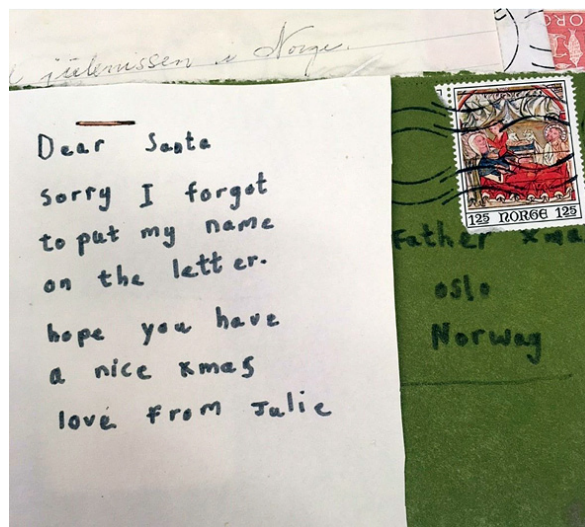 julenissen i Norge.
Dear Santa
sorry I forgot
to put my name
on the letter.
hope you have
a nice xmas
love from Julie
125 NORGE 125
Father xma
oslo
Norway